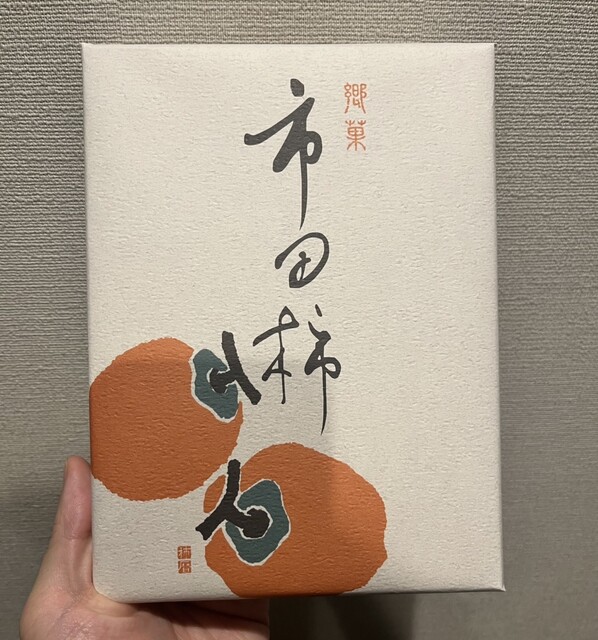 郷菓
市田柿